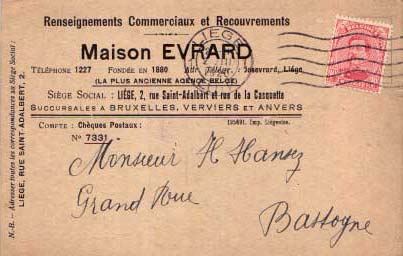 Renseignements Commerciaux et Recouvrements
Maison EVRARD
TÉLÉPHONE 1227 FONDÉE EN 1880 Adr. Télégr.: Josevrard, Liége
(LA PLUS ANCIENNE AGENCE BELGE)
SIÈGE SOCIAL : LIÉGE, 2, rue Saint-Adalbert et rue de la Casquette
SUCCURSALES A BRUXELLES, VERVIERS ET ANVERS
COMPTE : Chèques Postaux :
Nº 7331
135691. Imp. Liégeoise.
Monsieur H Hansez
Grand Rue
Bastogne
N.-B. — Adresser toutes les correspondances au Siége Social :
LIÉGE, RUE SAINT-ADALBERT, 2.
LIEGE